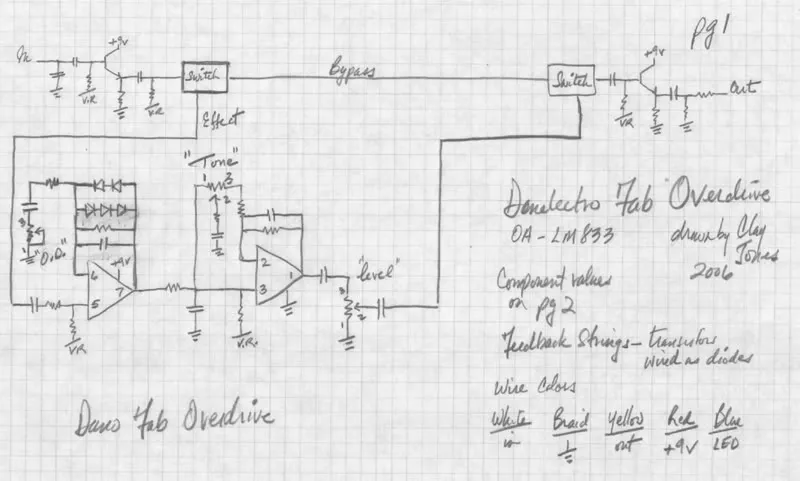 pg 1
In
+9v
VR
VR
Switch
Bypass
Switch
+9v
VR
Out
Effect
"Tone"
1 3
2
3
2
1
"O.D."
6
+9V
7
5
V.R.
2
1
3
V.R.
"level"
3
2
1
Danelectro Fab Overdrive
OA - LM833
drawn by Clay
Jones
2006
Component values
on pg 2
Feedback Strings - transistors
wired as diodes
Wire Colors
White Braid Yellow Red Blue
in out +9V LED
Dano Fab Overdrive